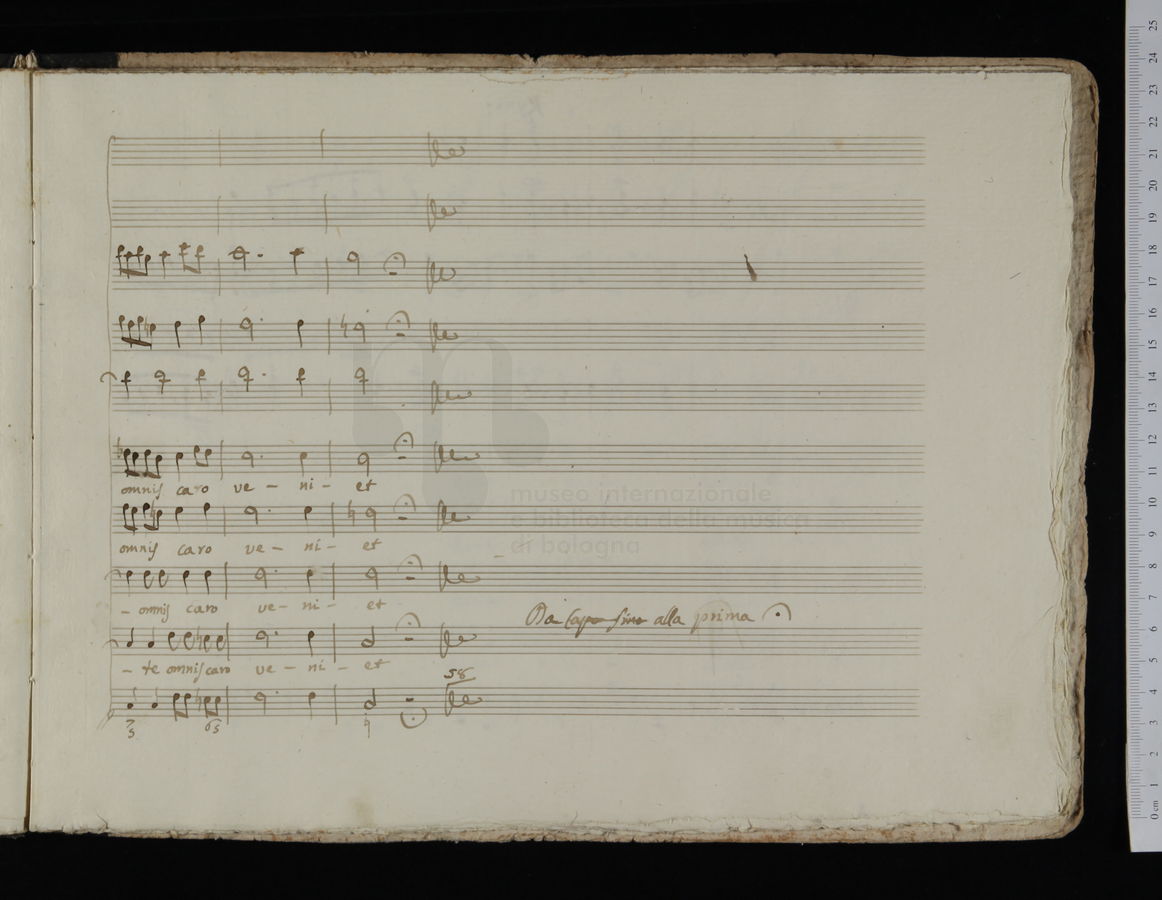 omnis caro ve - ni - et
museo internazionale
e biblioteca della musica
di bologna
omnis caro ve - ni - et
- omnis caro ve - ni - et
Da Capo fino alla prima
- te omnis caro ve - ni - et
58
7 6 5
5
0 cm 1 2 3 4 5 6 7 8 9 10 11 12 13 14 15 16 17 18 19 20 21 22 23 24 25